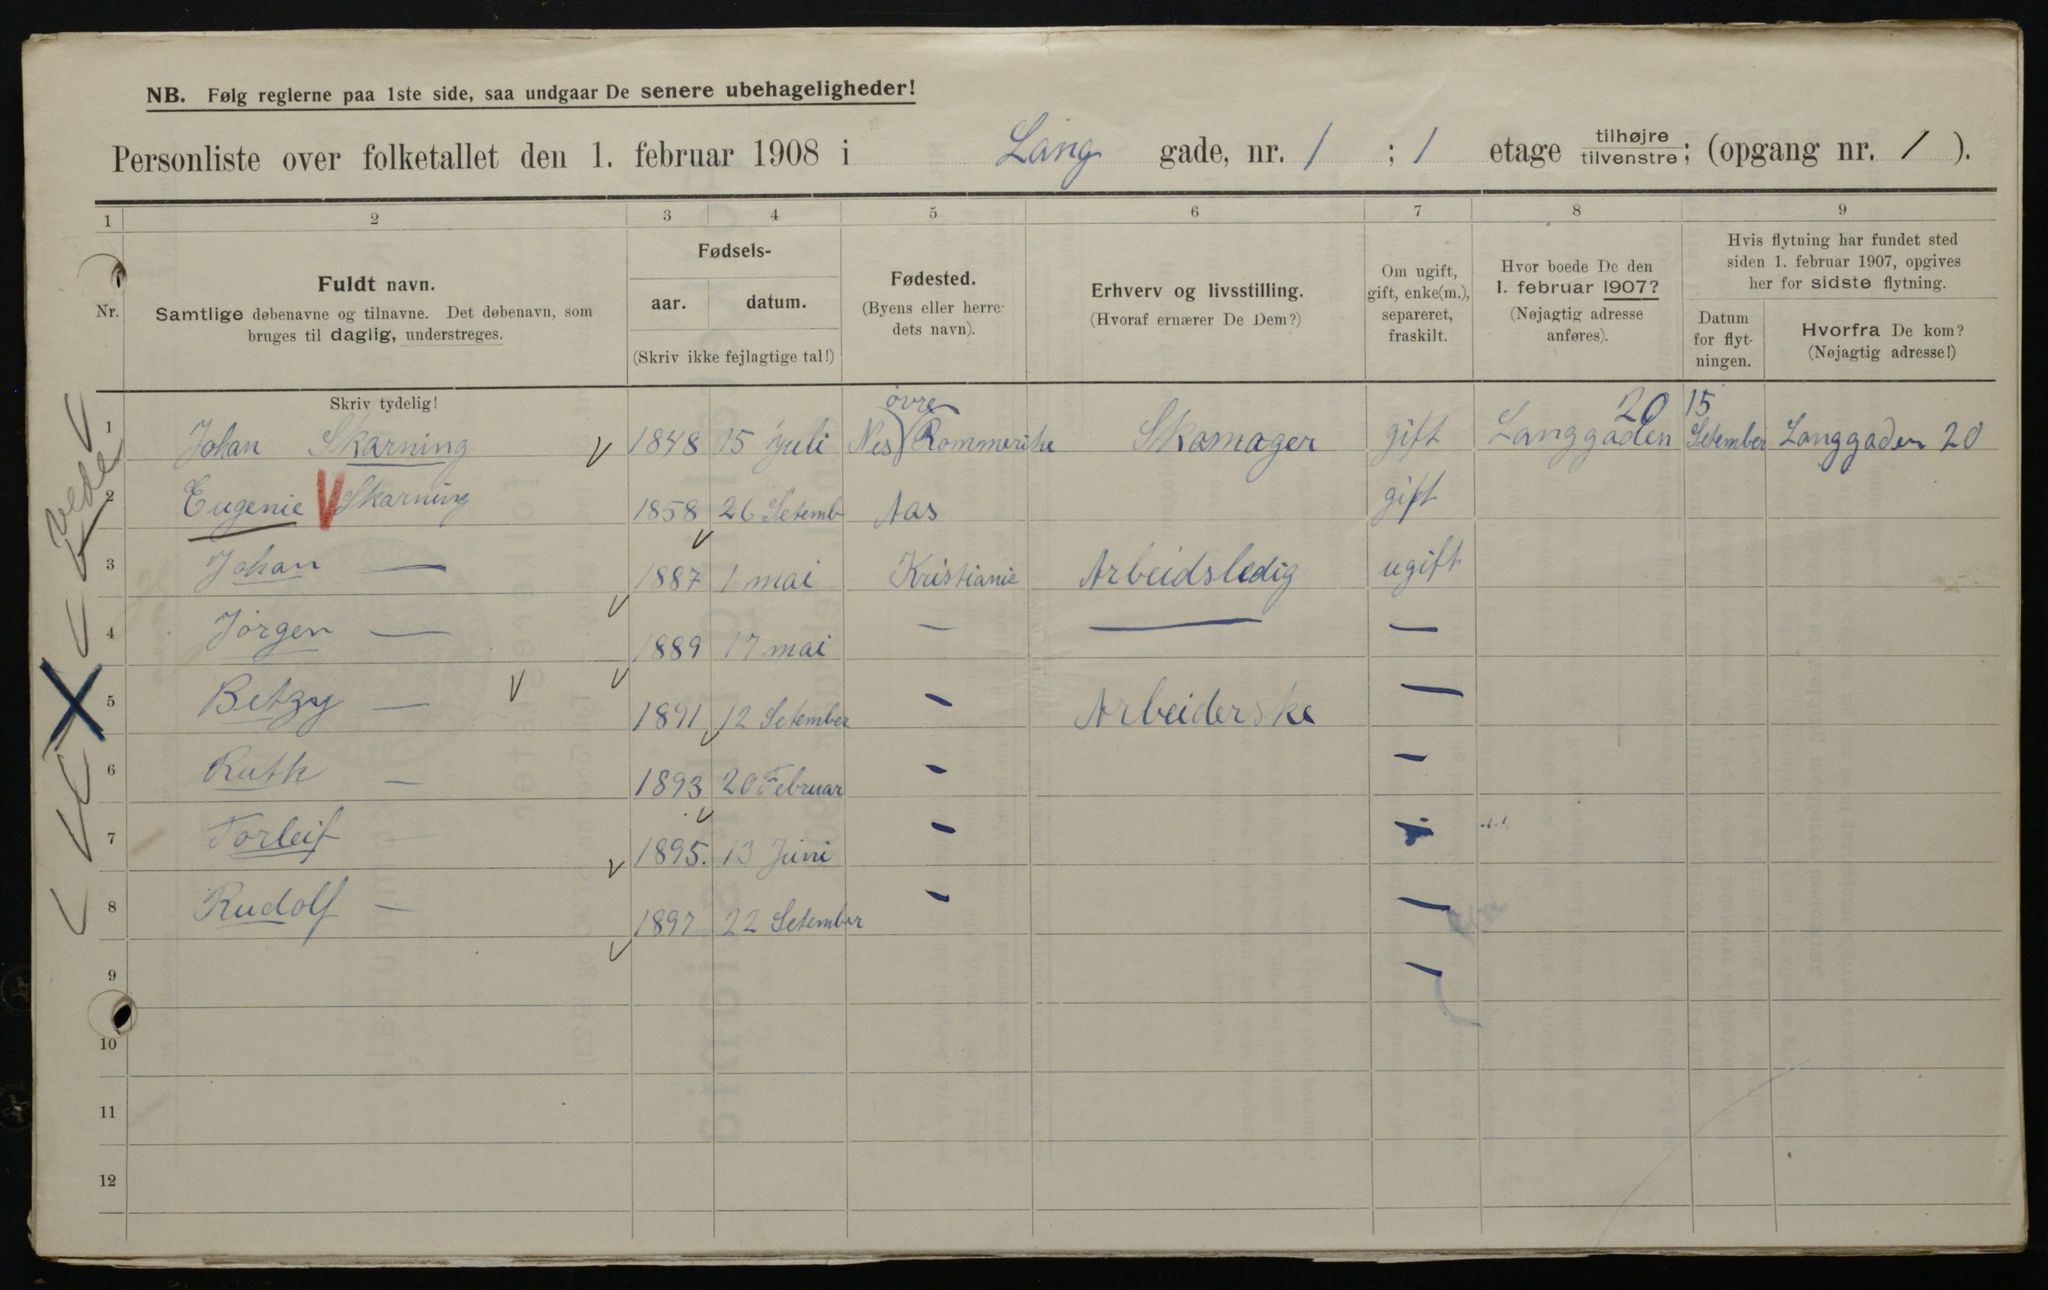 NB. Følg reglerne paa 1ste side, saa undgaar De senere ubehageligheder!
Personliste over folketallet den 1. februar 1908 i Lang gade, nr. 1 ; 1 etage tilhøjre/tilvenstre; (opgang nr. 1 ).
1 2 3 4 5 6 7 8 9
Nr.
Fuldt navn.
Samtlige døbenavne og tilnavne. Det døbenavn, som
bruges til daglig, understreges.
Skriv tydelig!
Fødsels-
aar. datum.
(Skriv ikke fejlagtige tal!)
Fødested.
(Byens eller herre-
dets navn).
Erhverv og livsstilling.
(Hvoraf ernærer De Dem?)
Om ugift,
gift, enke(m.),
separeret,
fraskilt.
Hvor boede De den
1. februar 1907?
(Nøjagtig adresse
anføres).
Hvis flytning har fundet sted
siden 1. februar 1907, opgives
her for sidste flytning.
Datum
for flyt-
ningen.
Hvorfra De kom?
(Nøjagtig adresse!)
øvre 20 15
1 Johan Skarning 1848 15 Juli Nes Rommerike Skomager gift Langgaden Setember Langgaden 20
2 Eugenie Skarning 1858 26 Setemb Aas gift
3 Johan — 1887 1 mai Kristianie Arbeidsledig ugift
4 Jørgen — 1889 17 mai — — —
5 Betzy — 1891 12 Setember - Arbeiderske —
6 Ruth — 1893 20 Februar - -
7 Torleif - 1895. 13 Juni - -
8 Rudolf - 1897 22 Setember - -
9 -
10
11
12